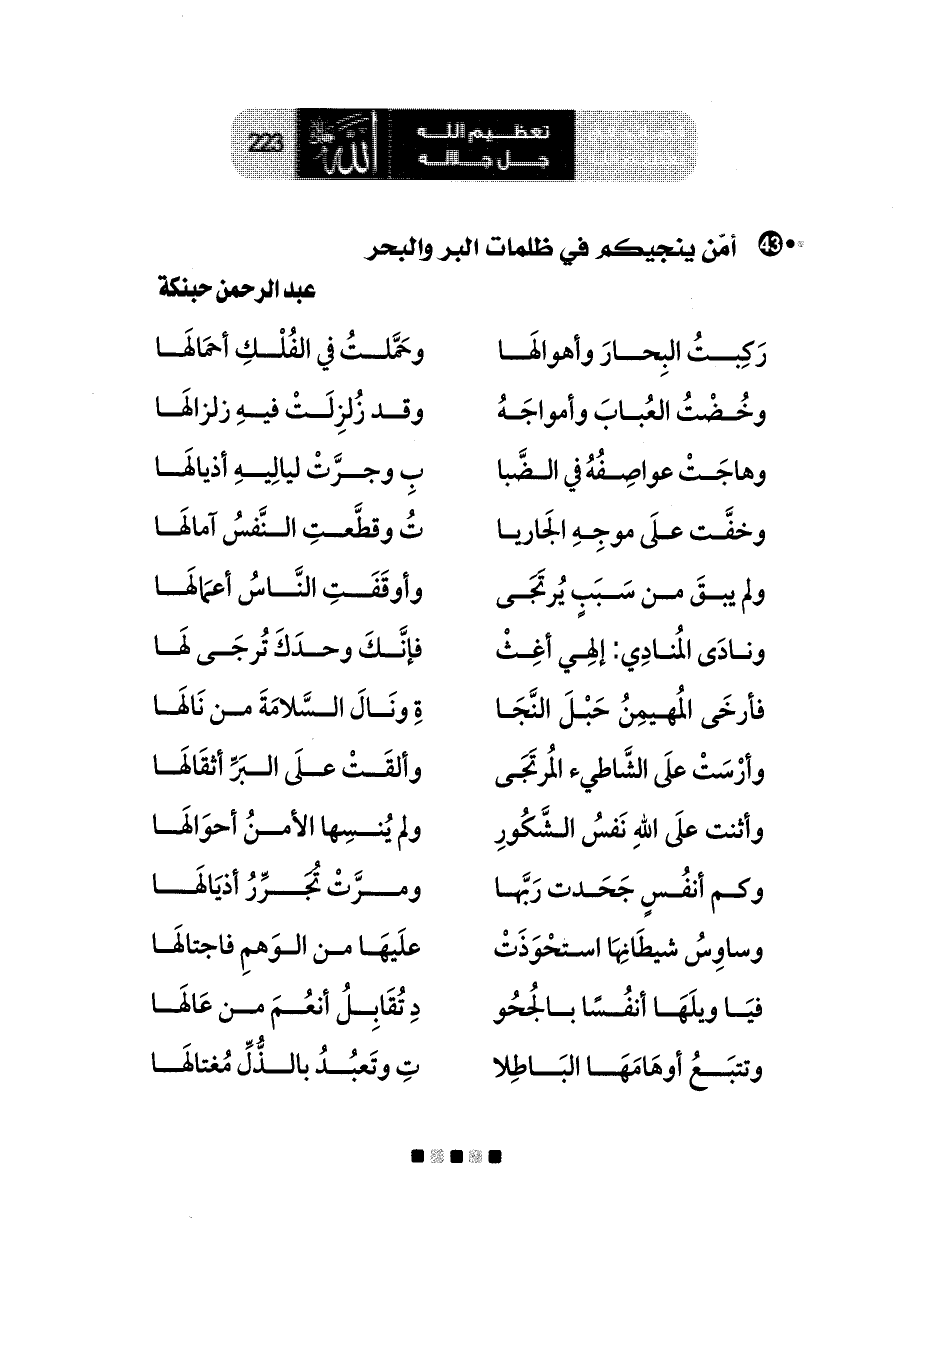 تعظيم الله
جل جلاله
223
43 أمّن ينجيكم في ظلمات البر والبحر
عبد الرحمن حبنكة
رَكِبتُ البِحارَ وأهوالَها وحَمَّلتُ في الفُلْكِ أحمَالَها
وخُضْتُ العُبابَ وأمواجَهُ وقد زُلزِلَتْ فيهِ زلزالَها
وهاجَتْ عواصِفُهُ في الضَّبا بِ وجرَّتْ ليالِيهِ أذيالَها
وخفَّت علَى موجِهِ الجَاريا تُ وقطَّعتِ النَّفسُ آمالَها
ولم يبقَ من سَبَبٍ يُرتَجَى وأوقَفَتِ النَّاسُ أعمَالَها
ونادَى المُنادِي: إلهِي أغِثْ فإنَّكَ وحدَكَ تُرجَى لَها
فأرخَى المُهيمِنُ حَبْلَ النَّجَا ةِ ونَالَ السَّلامَةَ من نَالَها
وأرْسَتْ علَى الشَّاطيء المُرتَجَى وألقَتْ علَى البَرِّ أثقَالَها
وأثنت علَى اللهِ نَفسُ الشَّكُورِ ولم يُنسِها الأمنُ أحوَالَها
وكم أنفُسٍ جَحَدت رَبَّها ومرَّتْ تُجَرِّرُ أذيَالَها
وساوِسُ شيطَانِهَا استحْوَذَتْ علَيهَا من الوَهمِ فاجتالَها
فيَا ويلَهَا أنفُسًا بالجُحُو دِ تُقَابِلُ أنعُمَ من عَالَها
وتتبَعُ أوهَامَهَا البَاطِلا تِ وتَعبُدُ بالذُّلِّ مُغتالَها